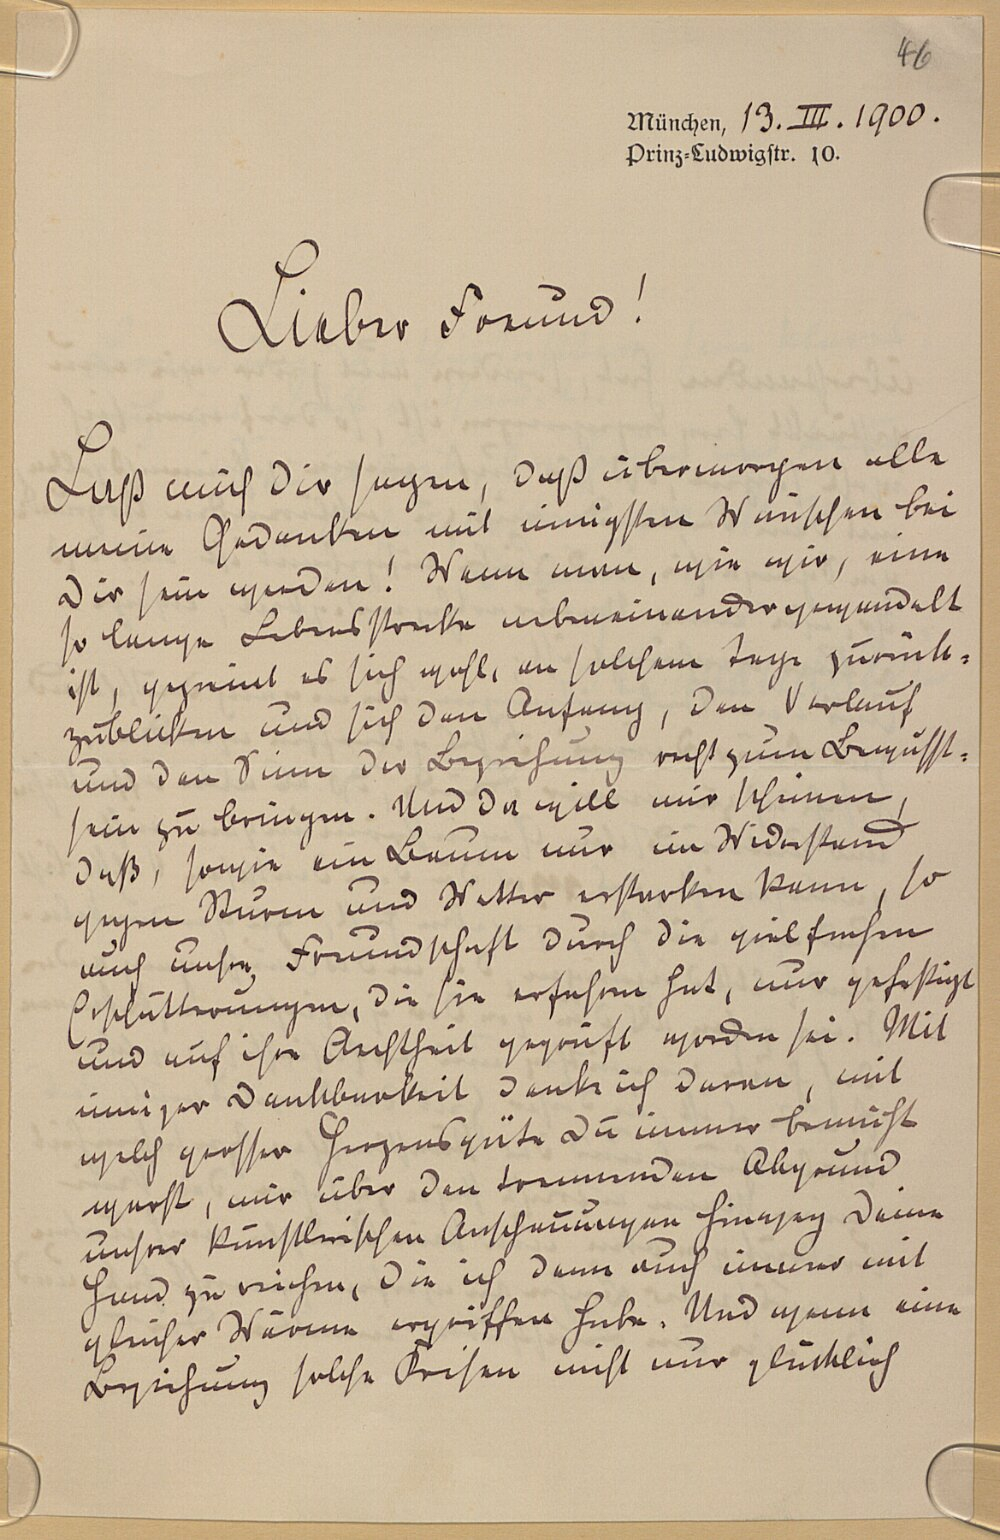 46
München, 13. III. 1900.
Prinz-Ludwigstr. 10.
Lieber Freund!
Laß mich Dir sagen, daß übermorgen alle
meine Gedanken mit innigsten Wünschen bei
Dir sein werden! Wenn man, wie wir, eine
so lange Lebensstrecke nebeneinander gewandelt
ist, geziemt es sich wohl, an solchem Tage zurück-
zublicken und sich den Anfang, den Verlauf
und den Sinn der Beziehung recht zum Bewusst-
sein zu bringen. Und da will mir scheinen,
daß, sowie ein Baum nur im Widerstand
gegen Sturm und Wetter erstarken kann, so
auch unsre Freundschaft durch die vielfachen
Erschütterungen, die sie erfahren hat, nur gefestigt
und auf ihre Aechtheit geprüft worden sei. Mit
inniger Dankbarkeit denke ich daran, mit
welch grosser Herzensgüte Du immer bemüht
warst, mir über den trennenden Abgrund
unsrer künstlerischen Anschauungen hinweg Deine
Hand zu reichen, die ich denn auch immer mit
gleicher Wärme ergriffen habe. Und wenn eine
Beziehung solche Krisen nicht nur glücklich